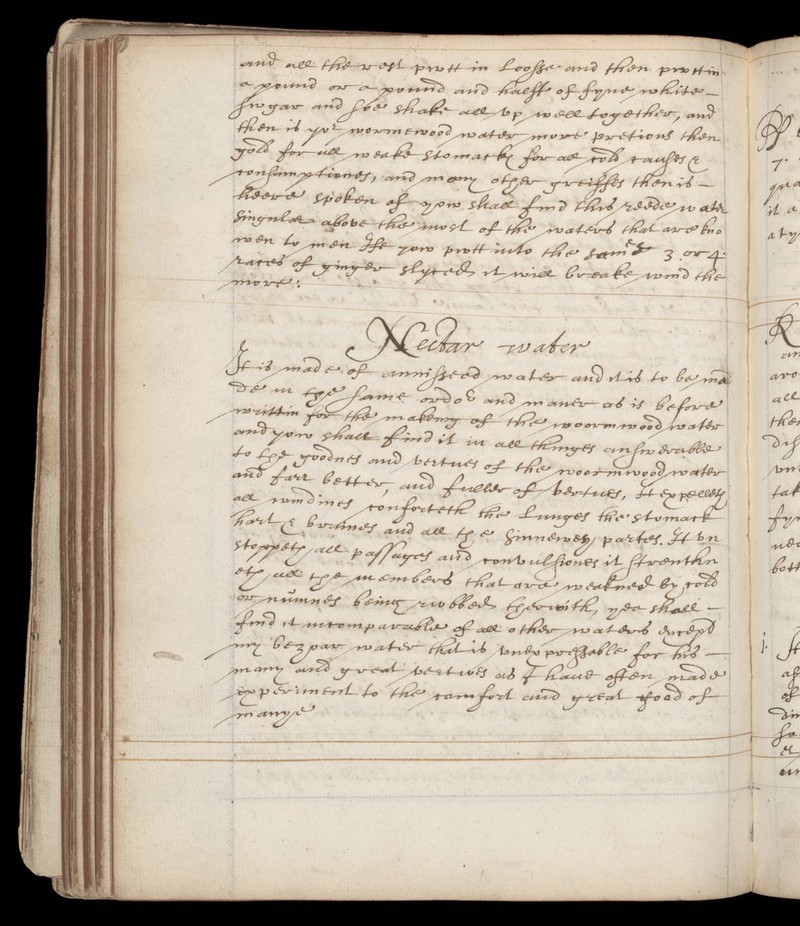 and all the rest putt in Loosse and then putt in
a pound or a pound and halff of fyne white
suygar and soe shake all vp well together, and
then is yor wormewood water more pretious then
gold for all weake stomacks for all cold causes &
consumptiones, and many other greiffes then is
heere spoken of yow shall find this reede water
singular above the most of the waters that are kno
wen to men If yow putt into the same 3 or 4
races of ginger slyced it will breake wind the
more:
Nectar water
It is made of annisseed water and it is to be ma
de in the same ordor and maner as is before
writtin for the makeing of the woormwood water
and yow shall find it in all thinges answerable
to the goodnes and vertues of the woormwood water
and farr better, and fuller of vertues, It expelleth
all windines conforteth the Lunges the stomack
hart & braines and all the sinnewey partes. It vn
stoppeth all passages and convulsiones it strenthn
eth all the members that are weakned by cold
or numnes being rubbed therwith, yee shall
find it incomparable of all other waters except
my bezoar water that is vnexpressable for his
many and great vertues as I haue often made
experiment to the comfort and great good of
manye